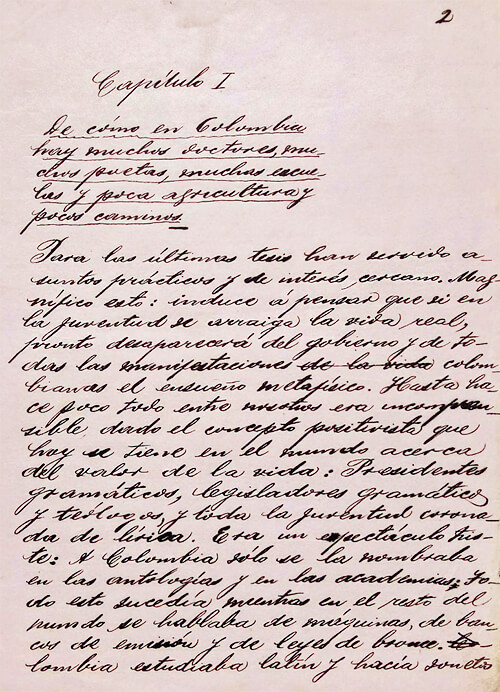 2
Capítulo I
De cómo en Colombia
hay muchos doctores, mu-
chos poetas, muchas escue-
las y poca agricultura y
pocos caminos.
Para las últimas tesis han servido a-
suntos prácticos y de interés cercano. Mag-
nífico esto: induce á pensar que si en
la juventud se arraiga la vida real,
pronto desaparecerá del gobierno y de to-
das las manifestaciones de la vida colom-
bianas el ensueño metafísico. Hasta ha-
ce poco todo entre nosotros era incompren-
sible, dado el concepto positivista que
hoy se tiene en el mundo acerca
del valor de la vida: Presidentes
gramáticos, legisladores gramáticos
y teólogos, y toda la juventud corona-
da de lírica. Era un espectáculo tris-
te: A Colombia sólo se la nombraba
en las antologías y en las academias; To-
do esto sucedía mientras en el resto del
mundo se hablaba de máquinas, de ban-
cos de emisión y de leyes de bronce. Co-
lombia estudiaba latín y hacía sonetos